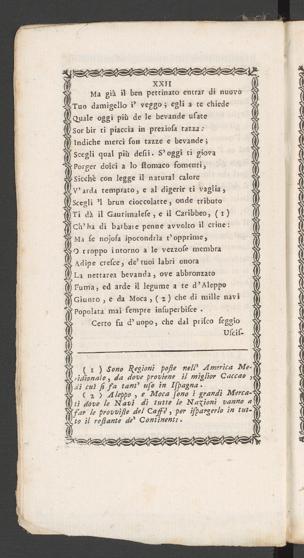 XXII
Ma già il ben pettinato entrar di nuovo
Tuo damigello i' veggo; egli a te chiede
Quale oggi più de le bevande usate
Sorbir ti piaccia in preziosa tazza:
Indiche merci son tazze e bevande;
Scegli qual più desii. S'oggi ti giova
Porger dolci a lo stomaco fomenti,
Sicchè con legge il natural calore
V'arda temprato, e al digerir ti vaglia,
Scegli 'l brun cioccolatte, onde tributo
Ti dà il Guatimalese, e il Caribbeo, (1)
Ch'ha di barbare penne avvolto il crine:
Ma se nojosa ipocondria t'opprime,
O troppo intorno a le vezzose membra
Adipe cresce, de' tuoi labri onora
La nettarea bevanda, ove abbronzato
Fuma, ed arde il legume a te d'Aleppo
Giunto, e da Moca, (2) che di mille navi
Popolata mai sempre insuperbisce.
Certo fu d'uopo, che dal prisco seggio
Uscis-
(1) Sono Regioni poste nell' America Me-
ridionale, da dove proviene il miglior Caccao,
di cui si fa tant' uso in Ispagna.
(2) Aleppo, e Moca sono i grandi Merca-
ti dove le Navi di tutte le Nazioni vanno a
far le provviste del Caffè, per ispargerlo in tut-
to il restante de' Continenti.